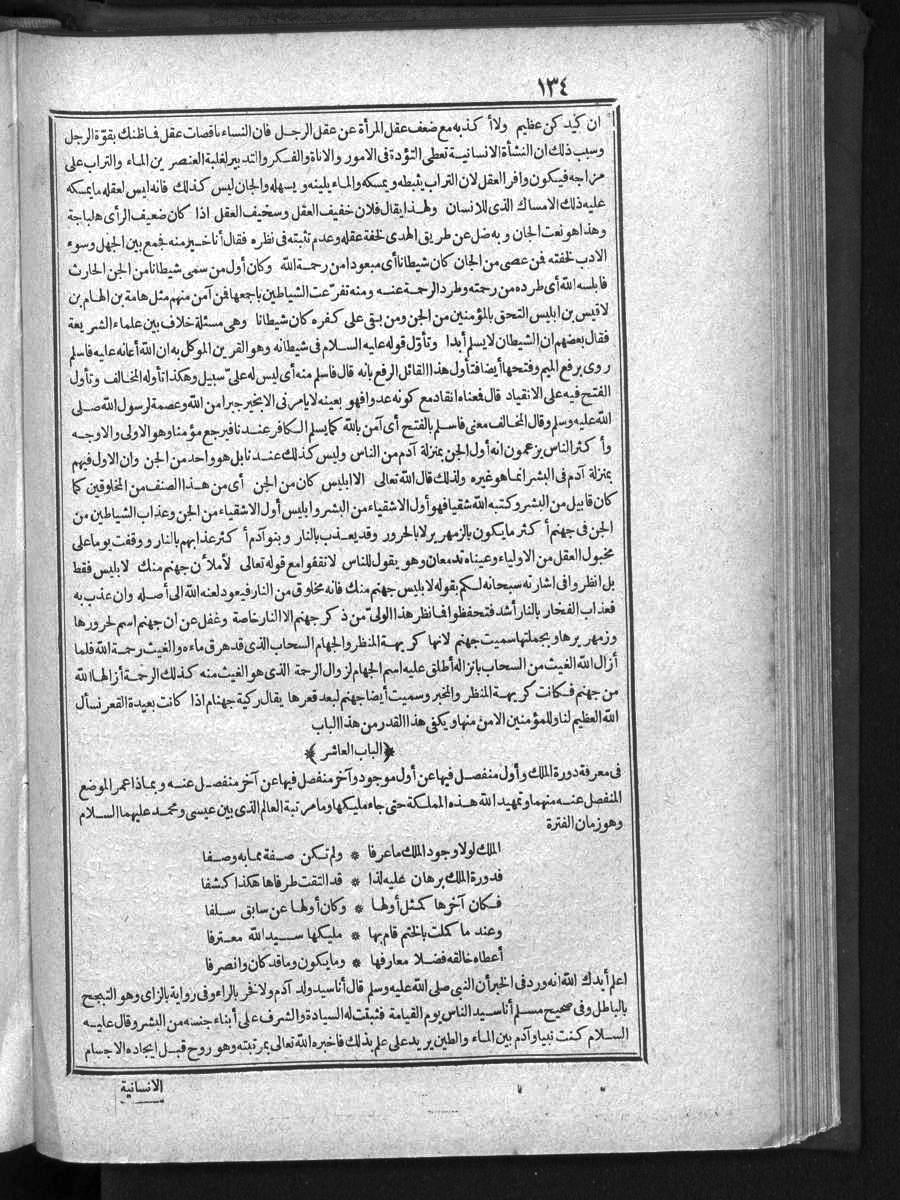 ١٣٤
ان كيدكن عظيم ولا أكذبه مع ضعف عقل المرأة عن عقل الرجل فان النساء ناقصات عقل فما ظنك بقوّة الرجل
وسبب ذلك ان النشأة الانسانية تعطى التؤدة فى الامور والاناة والفكر والتدبير لغلبة العنصرين الماء والتراب على
مزاجه فيكون وافر العقل لان التراب يثبطه ويمسكه والماء يلينه ويسهله والجان ليس كذلك فانه ليس لعقله ما يمسكه
عليه ذلك الامساك الذى للانسان ولهذا يقال فلان خفيف العقل وسخيف العقل اذا كان ضعيف الرأى هلباجة
وهذا هو نعت الجان وبه ضل عن طريق الهدى لخفة عقله وعدم تثبته فى نظره فقال أنا خير منه فجمع بين الجهل وسوء
الادب لخفته فمن عصى من الجان كان شيطانا أى مبعودا من رحمة الله وكان أول من سمى شيطانا من الجن الحارث
فابلسه الله أى طرده من رحمته وطرد الرحمة عنه ومنه تفرّعت الشياطين باجمعها فمن آمن منهم مثل هامة بن الهام بن
لاقيس بن ابليس التحق بالمؤمنين من الجن ومن بقى على كفره كان شيطانا وهى مسئلة خلاف بين علماء الشريعة
فقال بعضهم ان الشيطان لا يسلم أبدا وتأوّل قوله عليه السلام فى شيطانه وهو القرين الموكل به ان الله أعانه عليه فاسلم
روى برفع الميم وفتحها أيضا فتأول هذا القائل الرفع بانه قال فاسلم منه أى ليس له علىّ سبيل وهكذا تأوله المخالف وتأول
الفتح فيه على الانقياد قال فمعناه انقاد مع كونه عدوا فهو بعينه لا يأمرنى الا بخير جبرا من الله وعصمة لرسول الله صلى
الله عليه وسلم وقال المخالف معنى فاسلم بالفتح أى آمن بالله كما يسلم الكافر عندنا فيرجع مؤمنا وهو الاولى والاوجه
وأكثر الناس يزعمون انه أول الجن بمنزلة آدم من الناس وليس كذلك عندنا بل هو واحد من الجن وان الاول فيهم
بمنزلة آدم فى البشر انما هو غيره ولذلك قال الله تعالى الا ابليس كان من الجن أى من هذا الصنف من المخلوقين كما
كان قابيل من البشر وكتبه الله شقيا فهو أول الاشقياء من البشر وابليس أول الاشقياء من الجن وعذاب الشياطين من
الجن فى جهنم أكثر ما يكون بالزمهرير لا بالحرور وقد يعذب بالنار وبنو آدم أكثر عذابهم بالنار ووقفت يوما على
مخبول العقل من الاولياء وعيناه تدمعان وهو يقول للناس لا تقفوا مع قوله تعالى لأملأن جهنم منك لابليس فقط
بل انظروا فى اشارته سبحانه لكم بقوله لابليس جهنم منك فانه مخلوق من النار فيعود لعنه الله الى أصله وان عذب به
فعذاب الفخار بالنار أشد فتحفظوا فما نظر هذا الولىّ من ذكر جهنم الا النار خاصة وغفل عن ان جهنم اسم لحرورها
وزمهريرها وبجملتها سميت جهنم لانها كريهة المنظر والجهام السحاب الذى قد هرق ماءه والغيث رحمة الله فلما
أزال الله الغيث من السحاب بانزاله أطلق عليه اسم الجهام لزوال الرحمة الذى هو الغيث منه كذلك الرحمة أزالها الله
من جهنم فكانت كريهة المنظر والمخبر وسميت أيضا جهنم لبعد قعرها يقال ركية جهنام اذا كانت بعيدة القعر نسأل
الله العظيم لنا وللمؤمنين الامن منها ويكفى هذا القدر من هذا الباب
﴿الباب العاشر﴾
فى معرفة دورة الملك وأول منفصل فيها عن أول موجود وآخر منفصل فيها عن آخر منفصل عنه وبماذا عمر الموضع
المنفصل عنه منهما وتمهيد الله هذه المملكة حتى جاء مليكها وما مرتبة العالم الذى بين عيسى ومحمد عليهما السلام
وهو زمان الفترة
الملك لولا وجود الملك ما عرفا * ولم تكن صفة مما به وصفا
فدورة الملك برهان عليه لذا * قد التقت طرفاها هكذا كشفا
فكان آخرها كمثل أولها * وكان أولها عن سابق سلفا
وعند ما كملت بالختم قام بها * مليكها سيد الله معترفا
أعطاه خالقه فضلا معارفها * وما يكون وما قد كان وانصرفا
اعلم أيدك الله انه ورد فى الخبر أن النبى صلى الله عليه وسلم قال أنا سيد ولد آدم ولا فخر بالراء وفى رواية بالزاى وهو التبجح
بالباطل وفى صحيح مسلم أنا سيد الناس يوم القيامة فثبتت له السيادة والشرف على أبناء جنسه من البشر وقال عليه
السلام كنت نبيا وآدم بين الماء والطين يريد على علم بذلك فاخبره الله تعالى بمرتبته وهو روح قبل ايجاده الاجسام
الانسانية